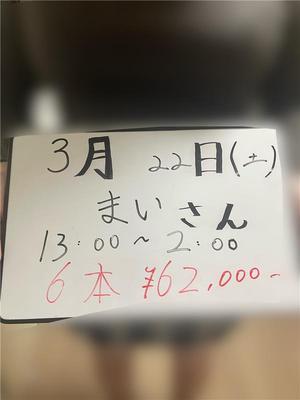 3月 22日(土)
まいさん
13:00~2:00
6本 ¥62,000-